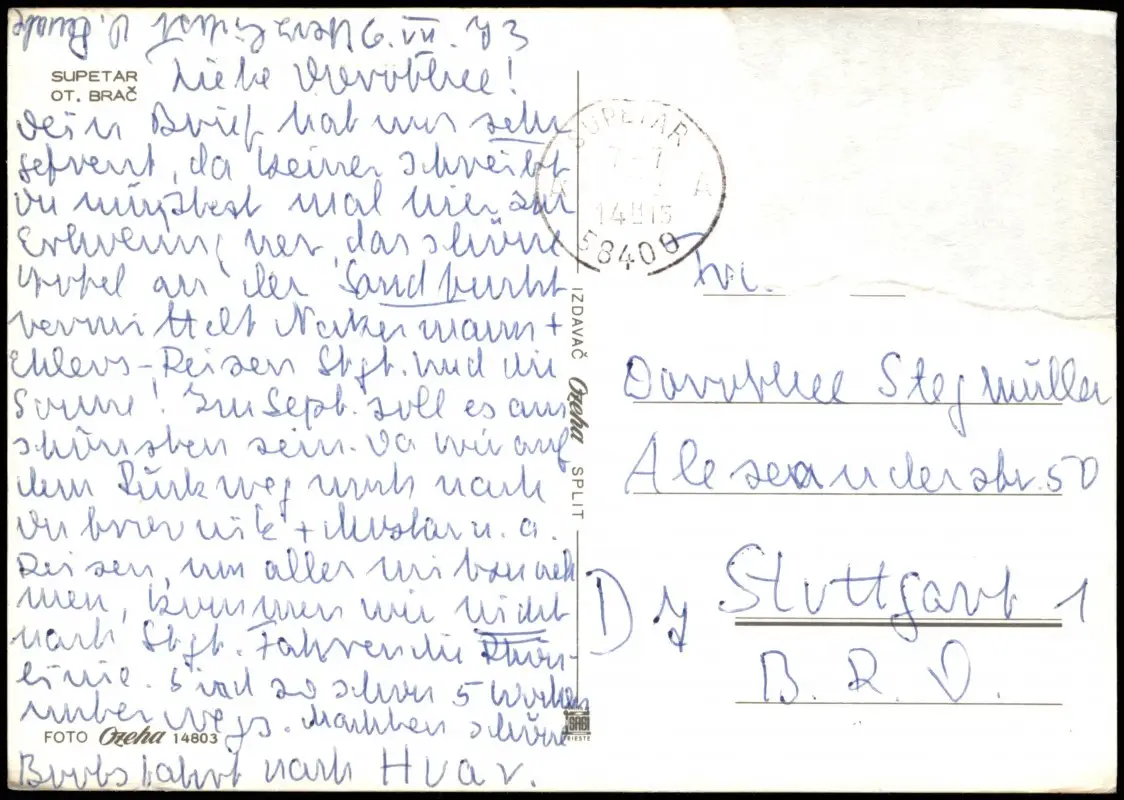 6. VII. 73
SUPETAR
OT. BRAČ
Liebe Dorothee!
Dein Brief hat uns sehr
gefreut, da keiner schreibt
Du müßtest mal hier zur
Erholung her, das schöne
Hotel an der Sandbucht
vermittelt Neckermann +
Ehlers-Reisen Stgt. und die
Sonne! Im Sept. soll es am
schönsten sein. Da wir auf
dem Rückweg noch nach
Dubrovnik + Mostar u. a.
Reisen, um alles mitzuneh
men, kommen wir nicht
nach Stgt. Fahren die Rhein-
linie. Sind so schon 5 Wochen
unterwegs. Machten schöne
Bootsfahrt nach Hvar.
FOTO Ozeha 14803
IZDAVAČ Ozeha SPLIT
SUPETAR
7-7
A A
58400
Dorothee Stegmüller
Alexanderstr. 50
D 7 Stuttgart 1
B. R. D.